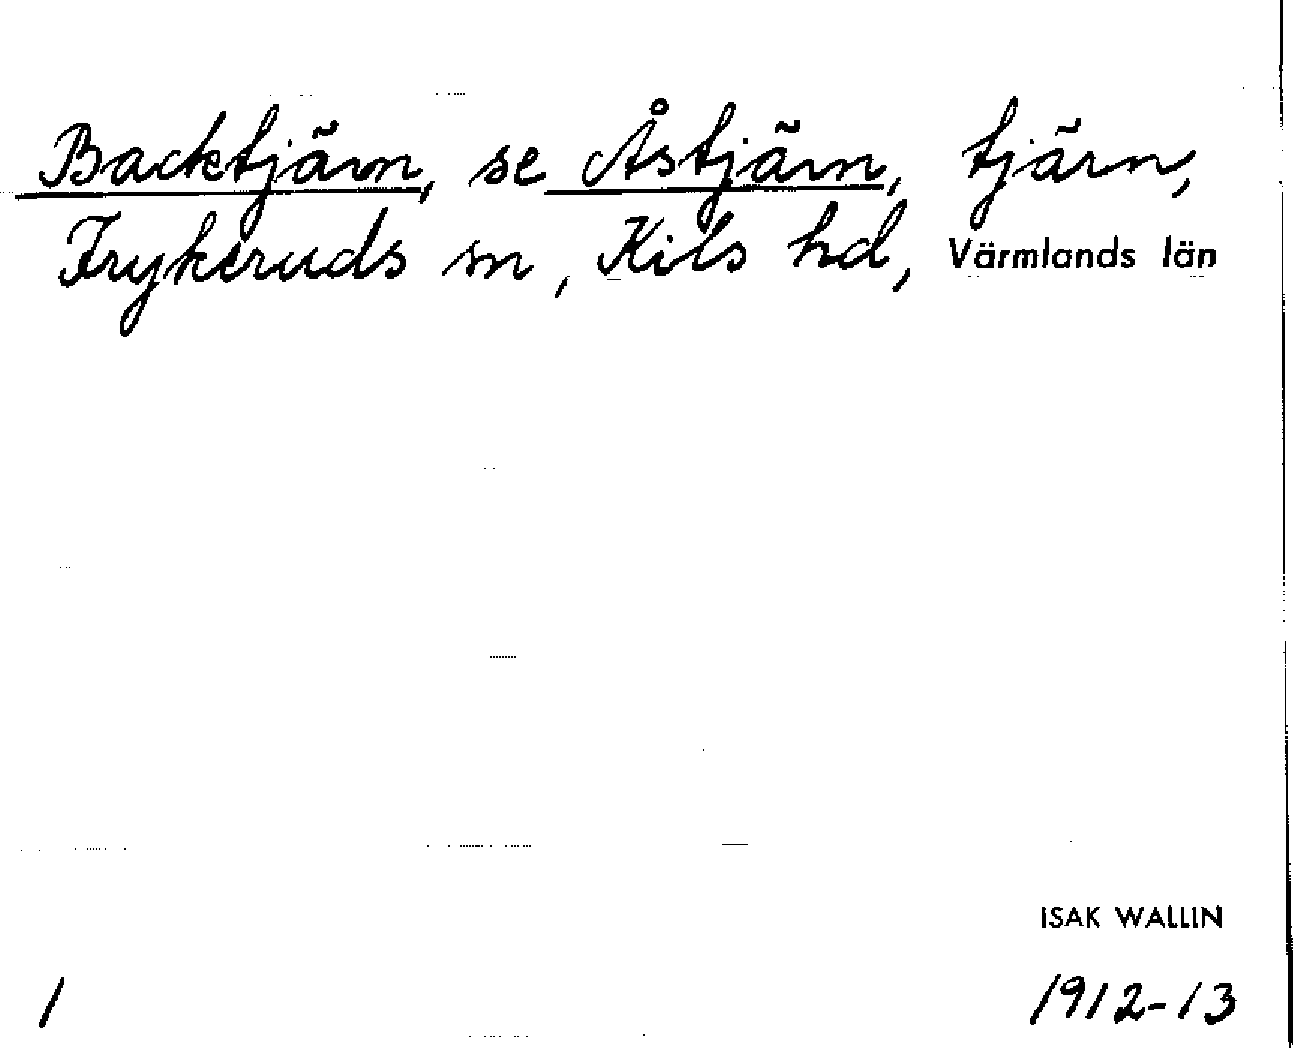 Backtjärn, se Åstjärn, tjärn,
Frykeruds sn, Kils hd, Värmlands län
ISAK WALLIN
1 1912-13